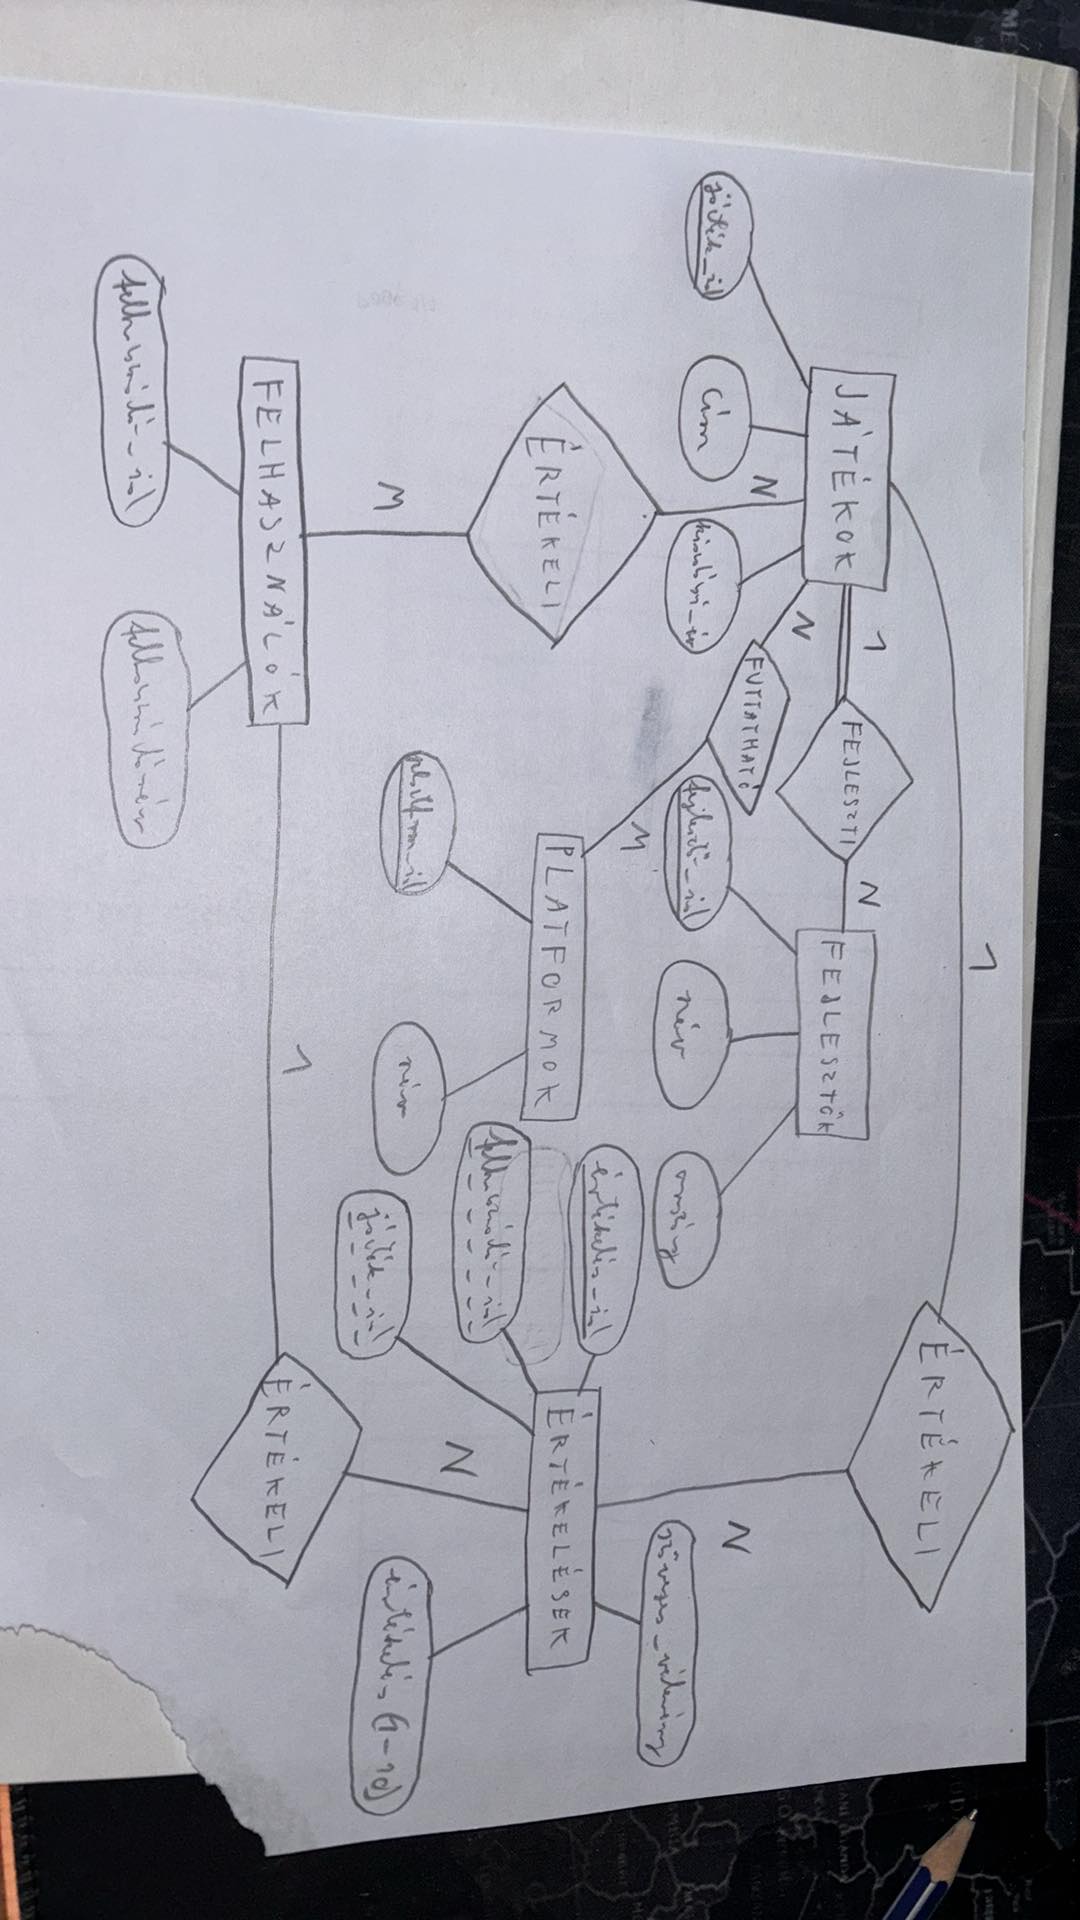 1
ÉRTÉKELI
JÁTÉKOK
1
FEJLESZTI
N
FEJLESZTŐK
N
N
FUTTATHATÓ
játék_id
cím
kiadási_év
fejlesztő_id
név
ország
N
szöveges_vélemény
M
értékelés_id
ÉRTÉKELÉSEK
ÉRTÉKELI
PLATFORMOK
felhasználó_id
N
platform_id
név
játék_id
értékelés (1-10)
M
FELHASZNÁLÓK
1
ÉRTÉKELI
felhasználó_id
felhasználónév